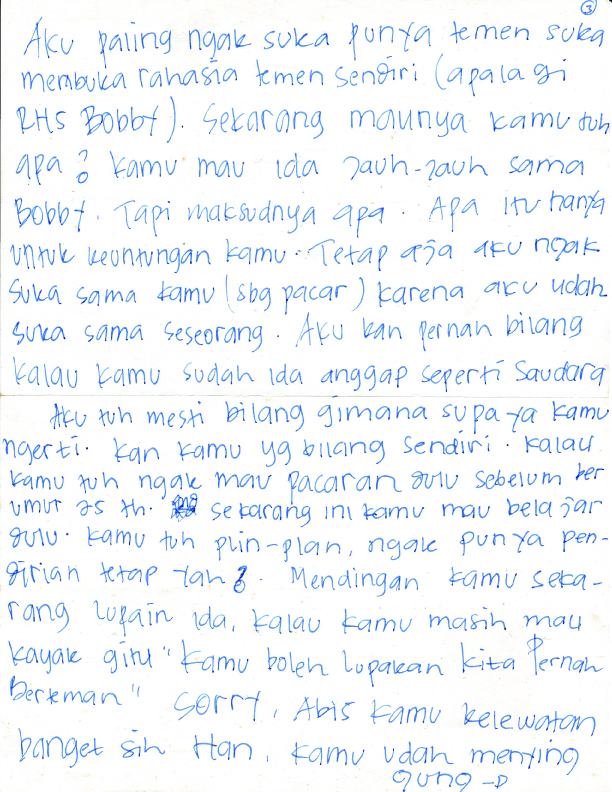 3
Aku paling ngak suka punya temen suka
membuka rahasia temen sendiri (apalagi
RHS Bobby). Sekarang maunya kamu tuh
apa? kamu mau ida jauh-jauh sama
Bobby. Tapi maksudnya apa. Apa itu hanya
untuk keuntungan kamu. Tetap aja aku ngak
suka sama kamu (sbg pacar) karena aku udah
suka sama seseorang. Aku kan pernah bilang
kalau kamu sudah ida anggap seperti Saudara
Aku tuh mesti bilang gimana supaya kamu
ngerti. kan kamu yg bilang sendiri. kalau
kamu tuh ngak mau pacaran dulu sebelum ber
umur 25 th. sekarang ini kamu mau belajar
dulu. kamu tuh plin-plan, ngak punya pen-
dirian tetap yah?. Mendingan kamu seka-
rang lupain ida, kalau kamu masih mau
kayak gitu "kamu boleh lupakan kita Pernah
Berteman" Sorry, Abis kamu kelewatan
banget sih Han, kamu udah menying
gung →